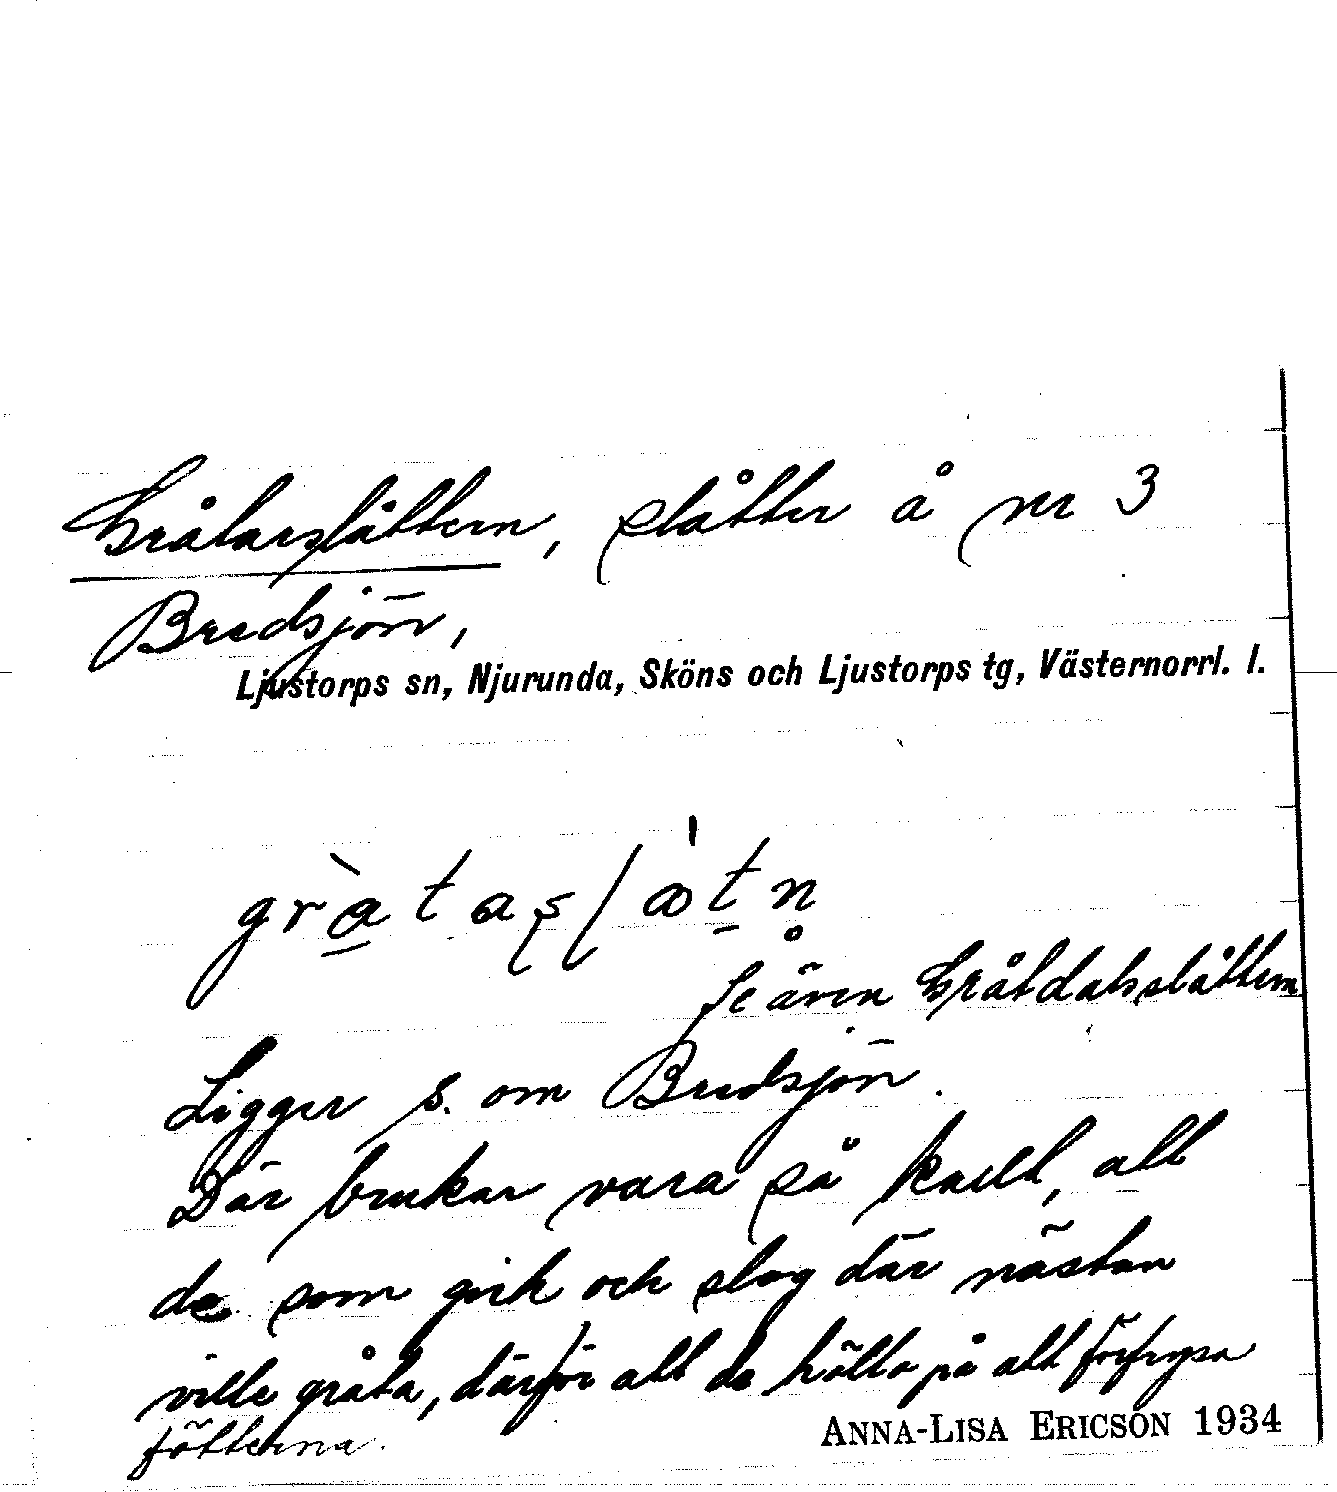 Gråtarslåttern, slåtter å nr 3
Bredsjön,
Ljustorps sn, Njurunda, Sköns och Ljustorps tg, Västernorrl. l.
Se även Gråtdalsslåttern
Ligger S. om Bredsjön.
Där brukar vara så kallt, att
de som gick och slog där nästan
ville gråta, därför att de höllo på att förfrysa
fötterna.
ANNA-LISA ERICSON 1934